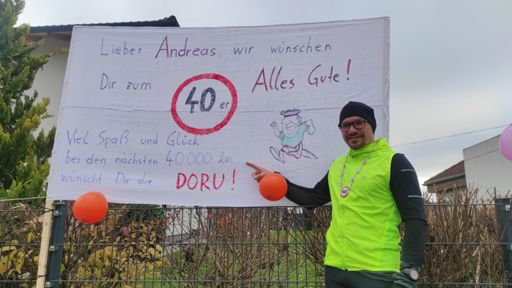 Lieber Andreas, wir wünschen
Dir zum 40er Alles Gute!
Viel Spaß und Glück
bei den nächsten 40.000 km
wünscht Dir die DORU!